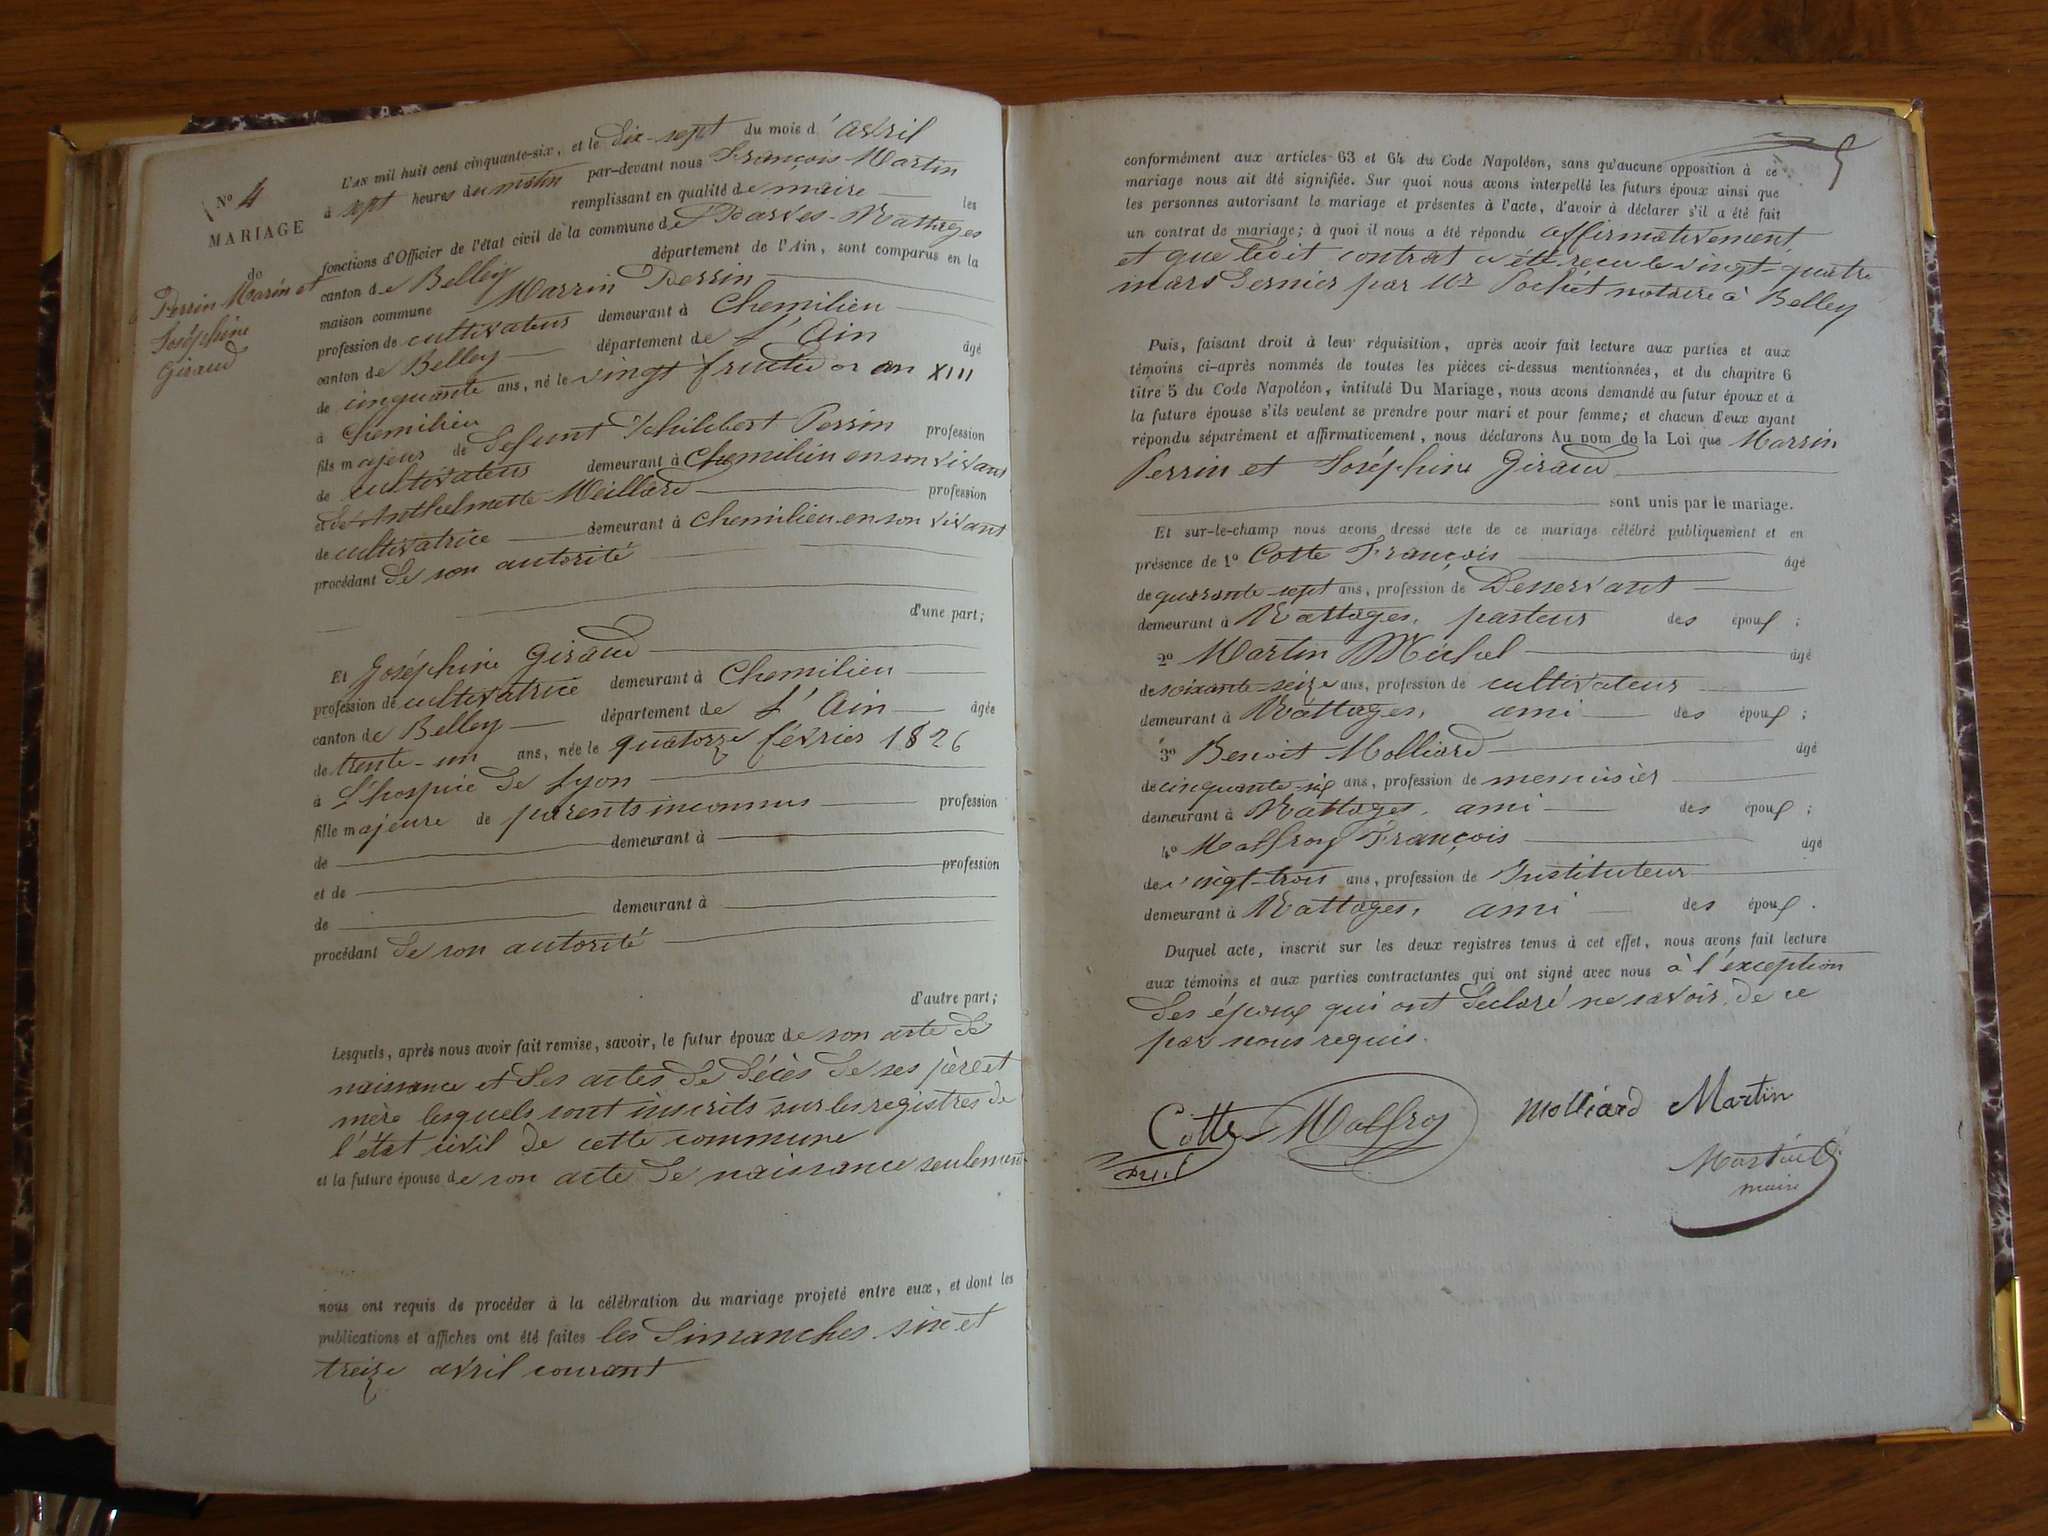 N° 4
MARIAGE
de
Perrin Marin et
Joséphine
Giraud
L'AN mil huit cent cinquante-six, et le dix-sept du mois d'avril
à sept heures du matin par-devant nous François Martin
remplissant en qualité de maire les
fonctions d'Officier de l'état civil de la commune de Parves-Nattages
canton de Belley département de l'Ain, sont comparus en la
maison commune Marrin Perrin
profession de cultivateur demeurant à Chemilieu
canton de Belley département de l'Ain âgé
de cinquante ans, né le vingt fructidor an XIII
à Chemilieu
fils majeur de défunt Philibert Perrin profession
de cultivateur demeurant à Chemilieu en son vivant
et de Anthelmette Meillard profession
de cultivatrice demeurant à Chemilieu en son vivant
procédant de son autorité
d'une part;
Et Joséphine Giraud
profession de cultivatrice demeurant à Chemilieu
canton de Belley département de l'Ain âgée
de trente-un ans, née le quatorze février 1826
à l'hospice de Lyon
fille majeure de parents inconnus profession
de demeurant à
et de profession
de demeurant à
procédant de son autorité
d'autre part;
Lesquels, après nous avoir fait remise, savoir, le futur époux de son acte de
naissance et des actes de décès de ses père et
mère lesquels sont inscrits sur les registres de
l'état civil de cette commune
et la future épouse de son acte de naissance seulement
nous ont requis de procéder à la célébration du mariage projeté entre eux, et dont les
publications et affiches ont été faites les dimanches six et
treize avril courant
5
conformément aux articles 63 et 64 du Code Napoléon, sans qu'aucune opposition à ce
mariage nous ait été signifiée. Sur quoi nous avons interpellé les futurs époux ainsi que
les personnes autorisant le mariage et présentes à l'acte, d'avoir à déclarer s'il a été fait
un contrat de mariage; à quoi il nous a été répondu affirmativement
et que ledit contrat a été reçu le vingt-quatre
mars dernier par Mr Pochet notaire à Belley
Puis, faisant droit à leur réquisition, après avoir fait lecture aux parties et aux
témoins ci-après nommés de toutes les pièces ci-dessus mentionnées, et du chapitre 6
titre 5 du Code Napoléon, intitulé Du Mariage, nous avons demandé au futur époux et à
la future épouse s'ils veulent se prendre pour mari et pour femme; et chacun d'eux ayant
répondu séparément et affirmativement, nous déclarons Au nom de la Loi que Marrin
Perrin et Joséphine Giraud
sont unis par le mariage.
Et sur-le-champ nous avons dressé acte de ce mariage célébré publiquement et en
présence de 1° Cotte François âgé
de quarante-sept ans, profession de Desservant
demeurant à Nattages, pasteur des époux ;
2° Martin Michel âgé
de soixante-seize ans, profession de cultivateur
demeurant à Nattages, ami des époux ;
3° Benoit Molliard âgé
de cinquante-six ans, profession de menuisier
demeurant à Nattages, ami des époux ;
4° Malfroy François âgé
de vingt-trois ans, profession de Instituteur
demeurant à Nattages, ami des époux .
Duquel acte, inscrit sur les deux registres tenus à cet effet, nous avons fait lecture
aux témoins et aux parties contractantes qui ont signé avec nous à l'exception
des époux qui ont déclaré ne savoir de ce
par nous requis.
Cotte Malfroy Molliard Martin
Martin
maire